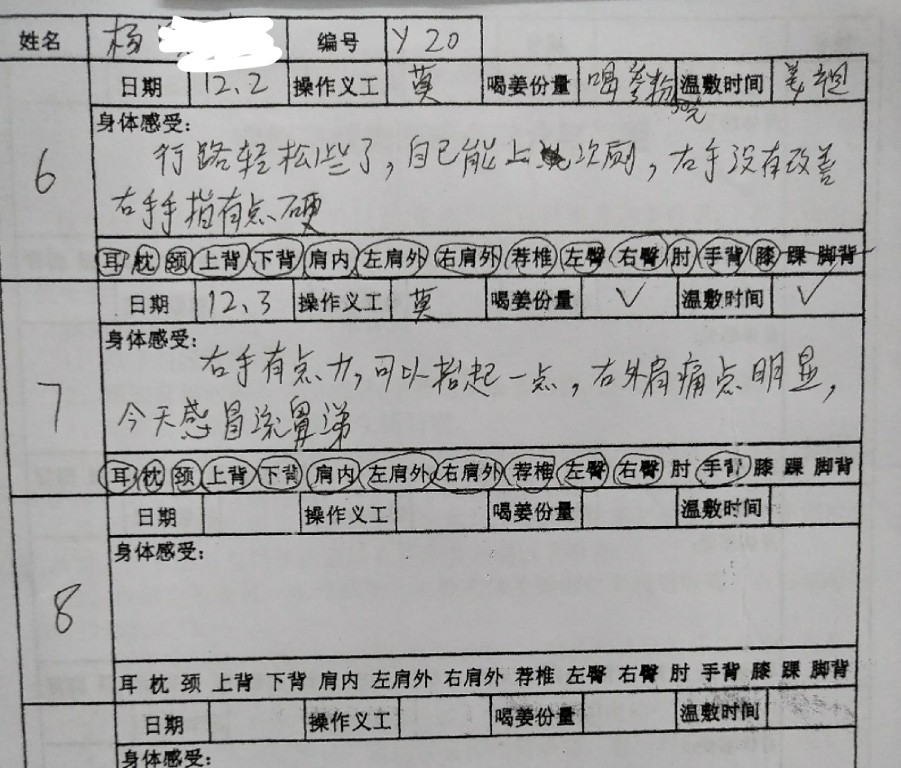 姓名 杨 编号 Y20
日期 12.2 操作义工 莫 喝姜份量 喝姜粉 温敷时间
身体感受:
6
行路轻松些了,自己能上次厕,右手没有改善
右手手指有点硬
耳 枕 颈 上背 下背 肩内 左肩外 右肩外 荐椎 左臀 右臀 肘 手背 膝 踝 脚背
日期 12.3 操作义工 莫 喝姜份量 ✓ 温敷时间 ✓
身体感受:
7
右手有点力,可以抬起一点,右外肩痛点明显,
今天感冒流鼻涕
耳 枕 颈 上背 下背 肩内 左肩外 右肩外 荐椎 左臀 右臀 肘 手背 膝 踝 脚背
日期 操作义工 喝姜份量 温敷时间
身体感受:
8
耳 枕 颈 上背 下背 肩内 左肩外 右肩外 荐椎 左臀 右臀 肘 手背 膝 踝 脚背
日期 操作义工 喝姜份量 温敷时间
身体感受: